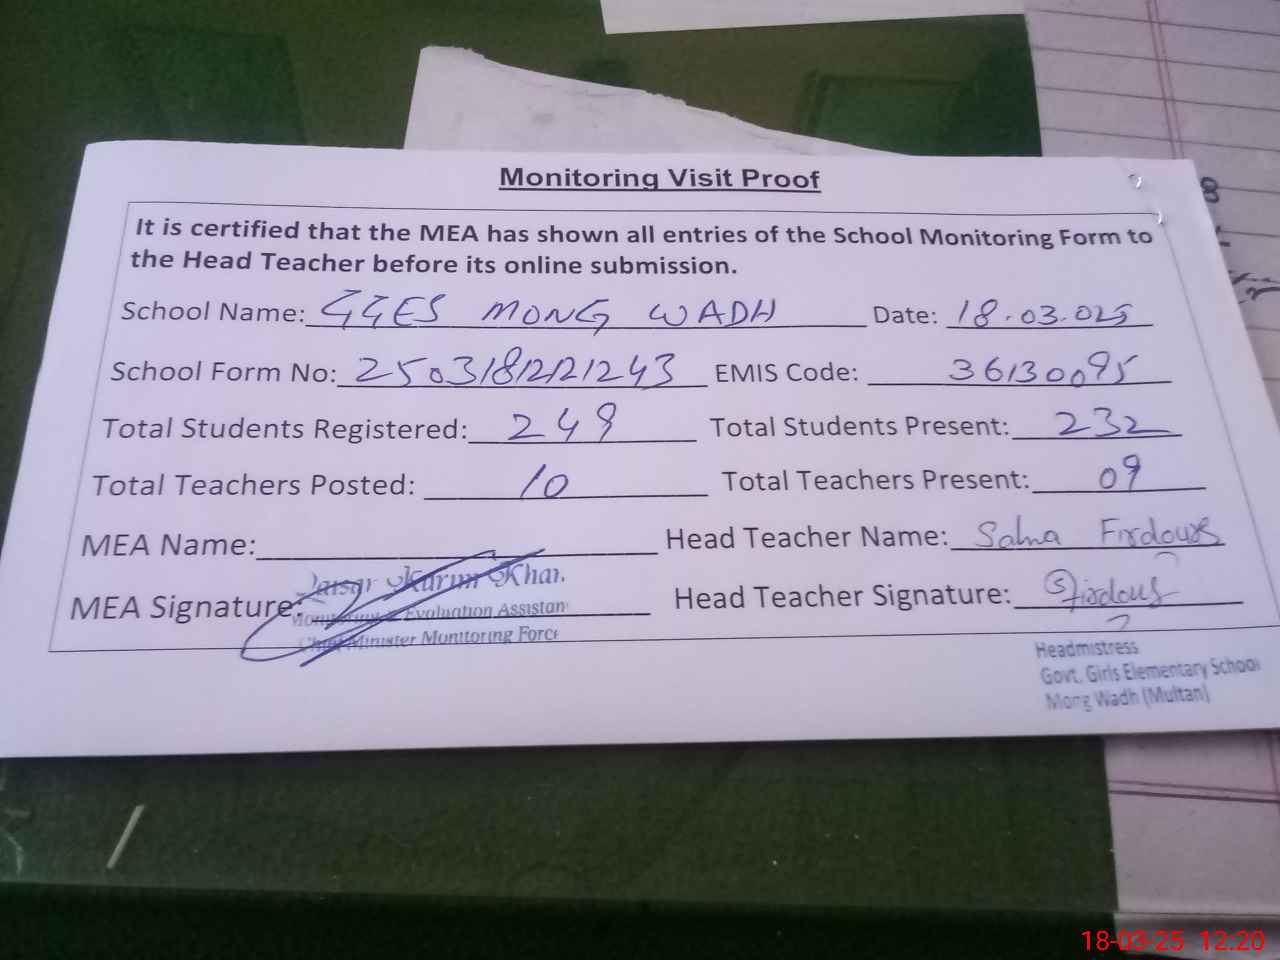 Monitoring Visit Proof
It is certified that the MEA has shown all entries of the School Monitoring Form to
the Head Teacher before its online submission.
School Name: GGES MONG WADH Date: 18.03.025
School Form No: 250318121221243 EMIS Code: 36130095
Total Students Registered: 249 Total Students Present: 232
Total Teachers Posted: 10 Total Teachers Present: 09
MEA Name: Head Teacher Name: Salma Firdous
Karim Khan
MEA Signature: Head Teacher Signature: Firdous
Evaluation Assistan
Minister Monitoring Force
Headmistress
Govt. Girls Elementary School
Mong Wadh (Multan)
18-03-25 12:20